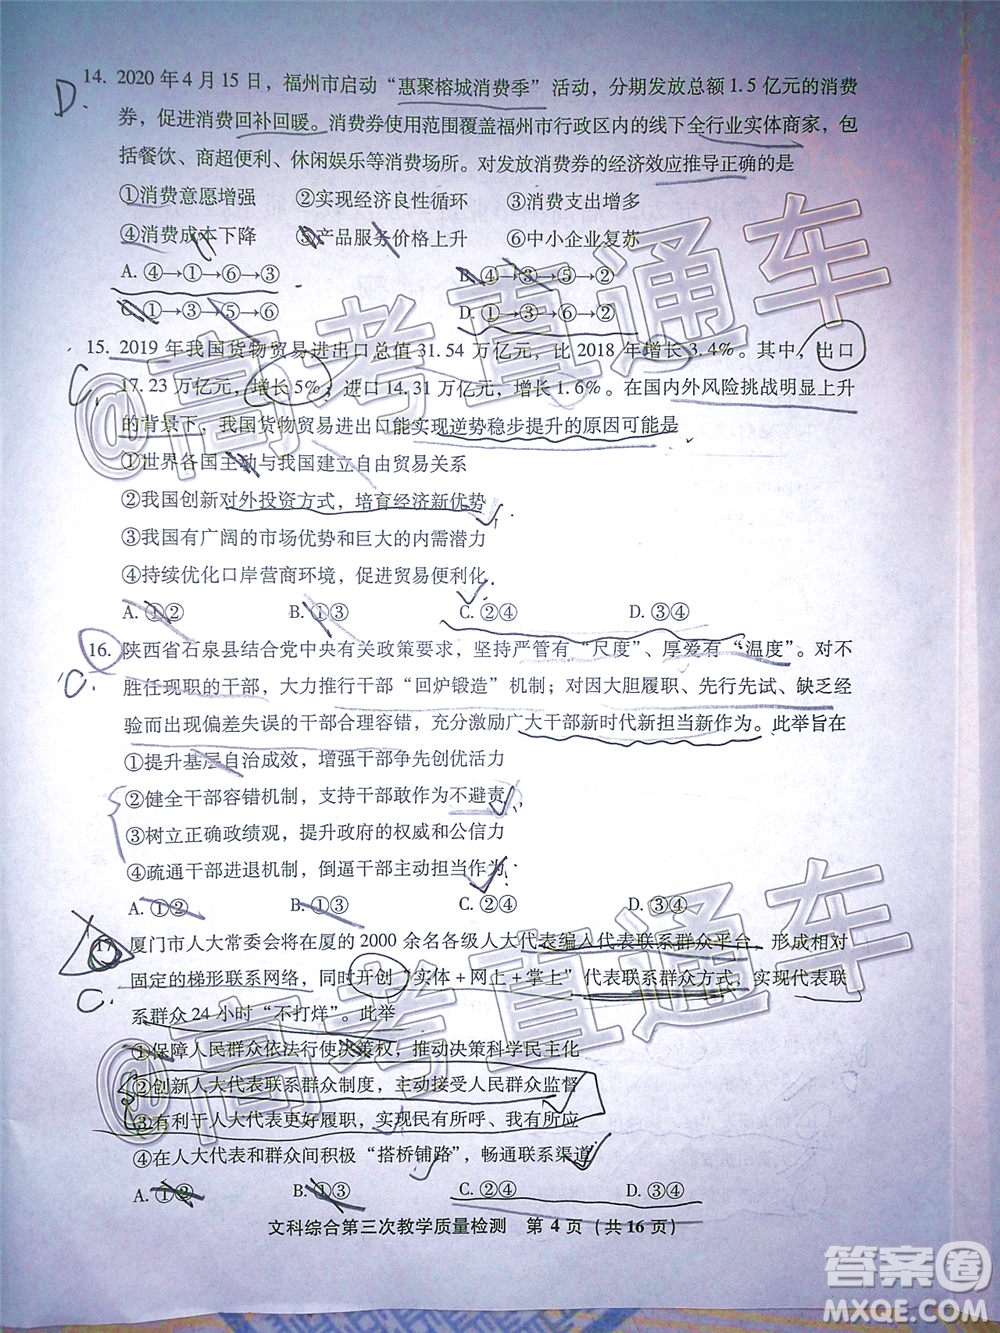 14. 2020 年 4 月 15 日，福州市启动“惠聚榕城消费季”活动，分期发放总额 1.5 亿元的消费
D.
券，促进消费回补回暖。消费券使用范围覆盖福州市行政区内的线下全行业实体商家，包
括餐饮、商超便利、休闲娱乐等消费场所。对发放消费券的经济效应推导正确的是
①消费意愿增强 ②实现经济良性循环 ③消费支出增多
④消费成本下降 ⑤产品服务价格上升 ⑥中小企业复苏
A. ④→①→⑥→③ B. ④→③→⑤→②
C. ①→③→⑤→⑥ D. ①→③→⑥→②
15. 2019 年我国货物贸易进出口总值 31.54 万亿元，比 2018 年增长 3.4%。其中，出口
C.
17.23 万亿元，增长 5%；进口 14.31 万亿元，增长 1.6%。在国内外风险挑战明显上升
的背景下，我国货物贸易进出口能实现逆势稳步提升的原因可能是
①世界各国主动与我国建立自由贸易关系
②我国创新对外投资方式，培育经济新优势
③我国有广阔的市场优势和巨大的内需潜力
④持续优化口岸营商环境，促进贸易便利化
A. ①② B. ①③ C. ②④ D. ③④
16. 陕西省石泉县结合党中央有关政策要求，坚持严管有“尺度”、厚爱有“温度”。对不
C.
胜任现职的干部，大力推行干部“回炉锻造”机制；对因大胆履职、先行先试、缺乏经
验而出现偏差失误的干部合理容错，充分激励广大干部新时代新担当新作为。此举旨在
①提升基层自治成效，增强干部争先创优活力
②健全干部容错机制，支持干部敢作为不避责
③树立正确政绩观，提升政府的权威和公信力
④疏通干部能下机制，倒逼干部主动担当作为
A. ①② B. ①③ C. ②④ D. ③④
17. 厦门市人大常委会将在厦的 2000 余名各级人大代表编入代表联系群众平台，形成相对
固定的梯形联系网络，同时开创“实体＋网上＋掌上”代表联系群众方式，实现代表联
C.
系群众 24 小时“不打烊”。此举
①保障人民群众依法行使决策权，推动决策科学民主化
②创新人大代表联系群众制度，主动接受人民群众监督
③有利于人大代表更好履职，实现民有所呼、我有所应
④在人大代表和群众间积极“搭桥铺路”，畅通联系渠道
A. ①② B. ①③ C. ②④ D. ③④
文科综合第三次教学质量检测 第 4 页（共 16 页）
@高考直通车
@高考直通车
答案圈
MXQE.COM